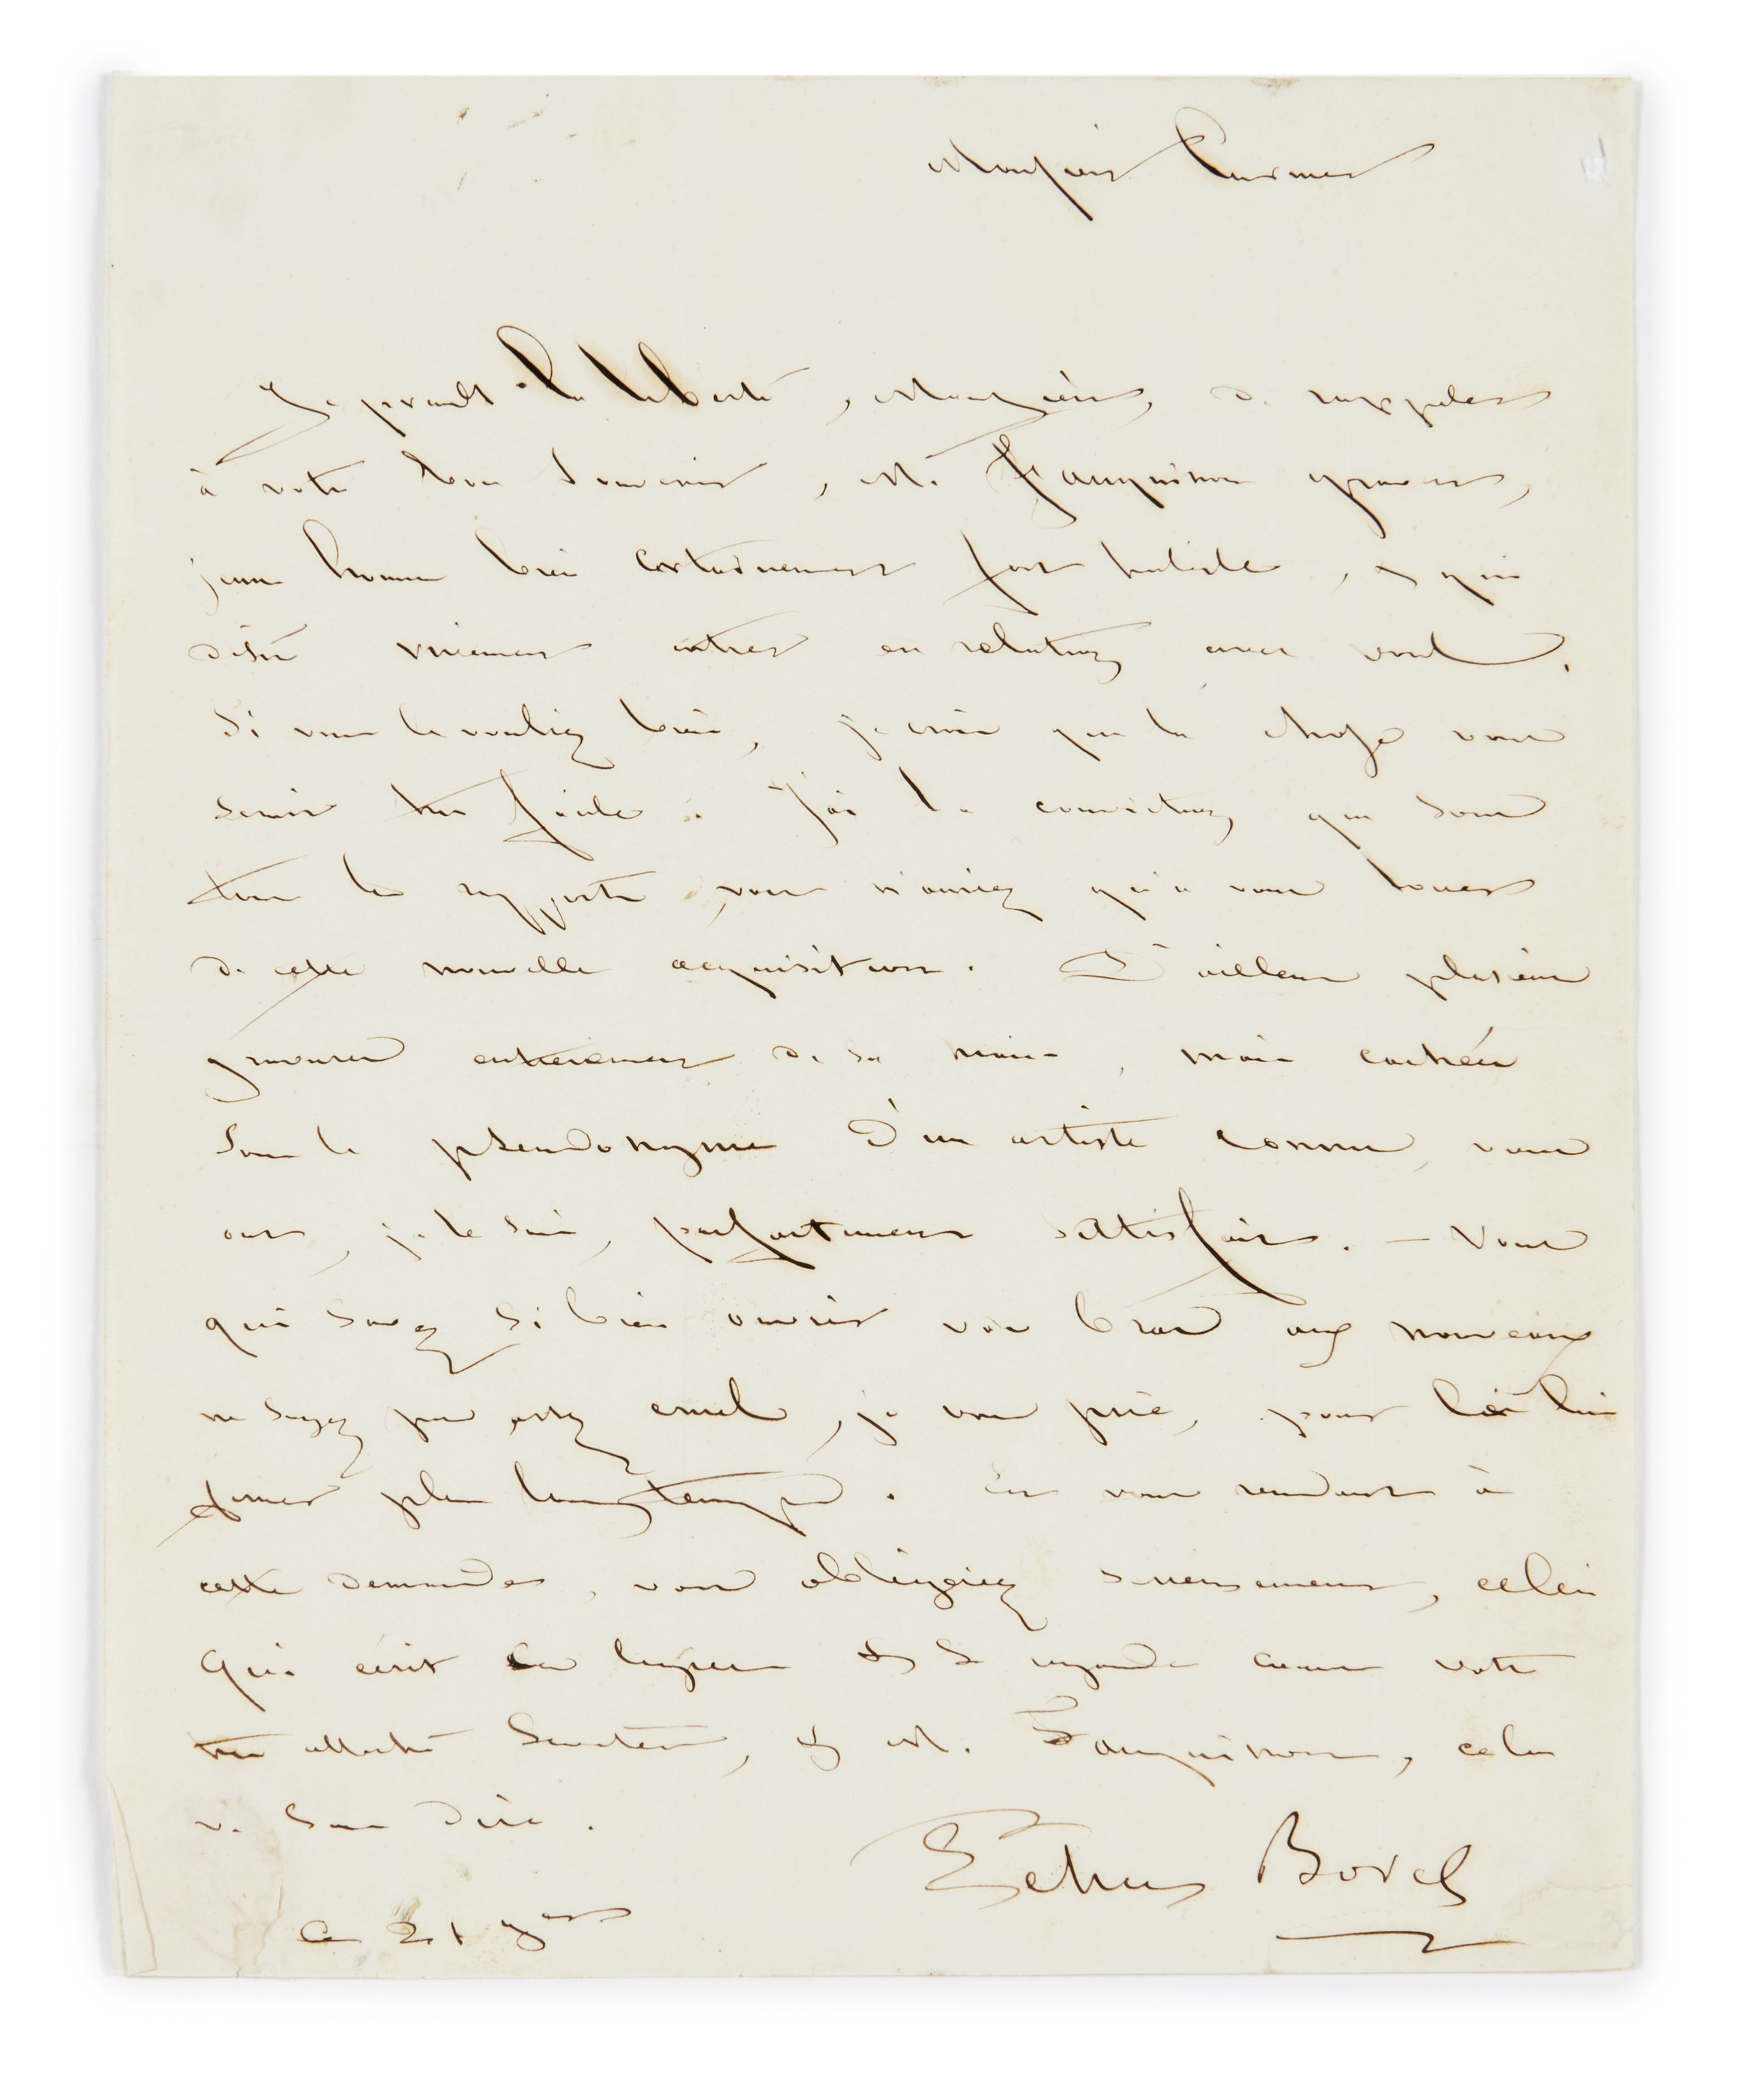 Monsieur Curmer
Je prends la liberté, Monsieur, de rappeler
à votre bon souvenir, M. Fauquinon graveur,
jeune homme bien certainement fort habile, et qui
désire vivement entrer en relations avec vous.
Si vous le vouliez bien, je crois que la chose vous
serait très facile : J'ai la conviction, que sous
tous les rapports, vous n'auriez qu'à vous louer
de cette nouvelle acquisition. D'ailleurs plusieurs
gravures entièrement de sa main, mais cachées
sous le pseudonyme d'un artiste connu, vous
ont, je le sais, parfaitement satisfait. — Vous
qui savez si bien ouvrir vos bras aux nouveaux
ne soyez pas assez cruel, je vous prie, pour les lui
fermer plus longtemps. En vous rendant à
cette demande, vous obligeriez sérieusement, celui
qui écrit ces lignes et se regarde comme votre
très attaché Serviteur, et M. Fauquinon, cela
va sans dire.
Pétrus Borel
Ce 21 9bre